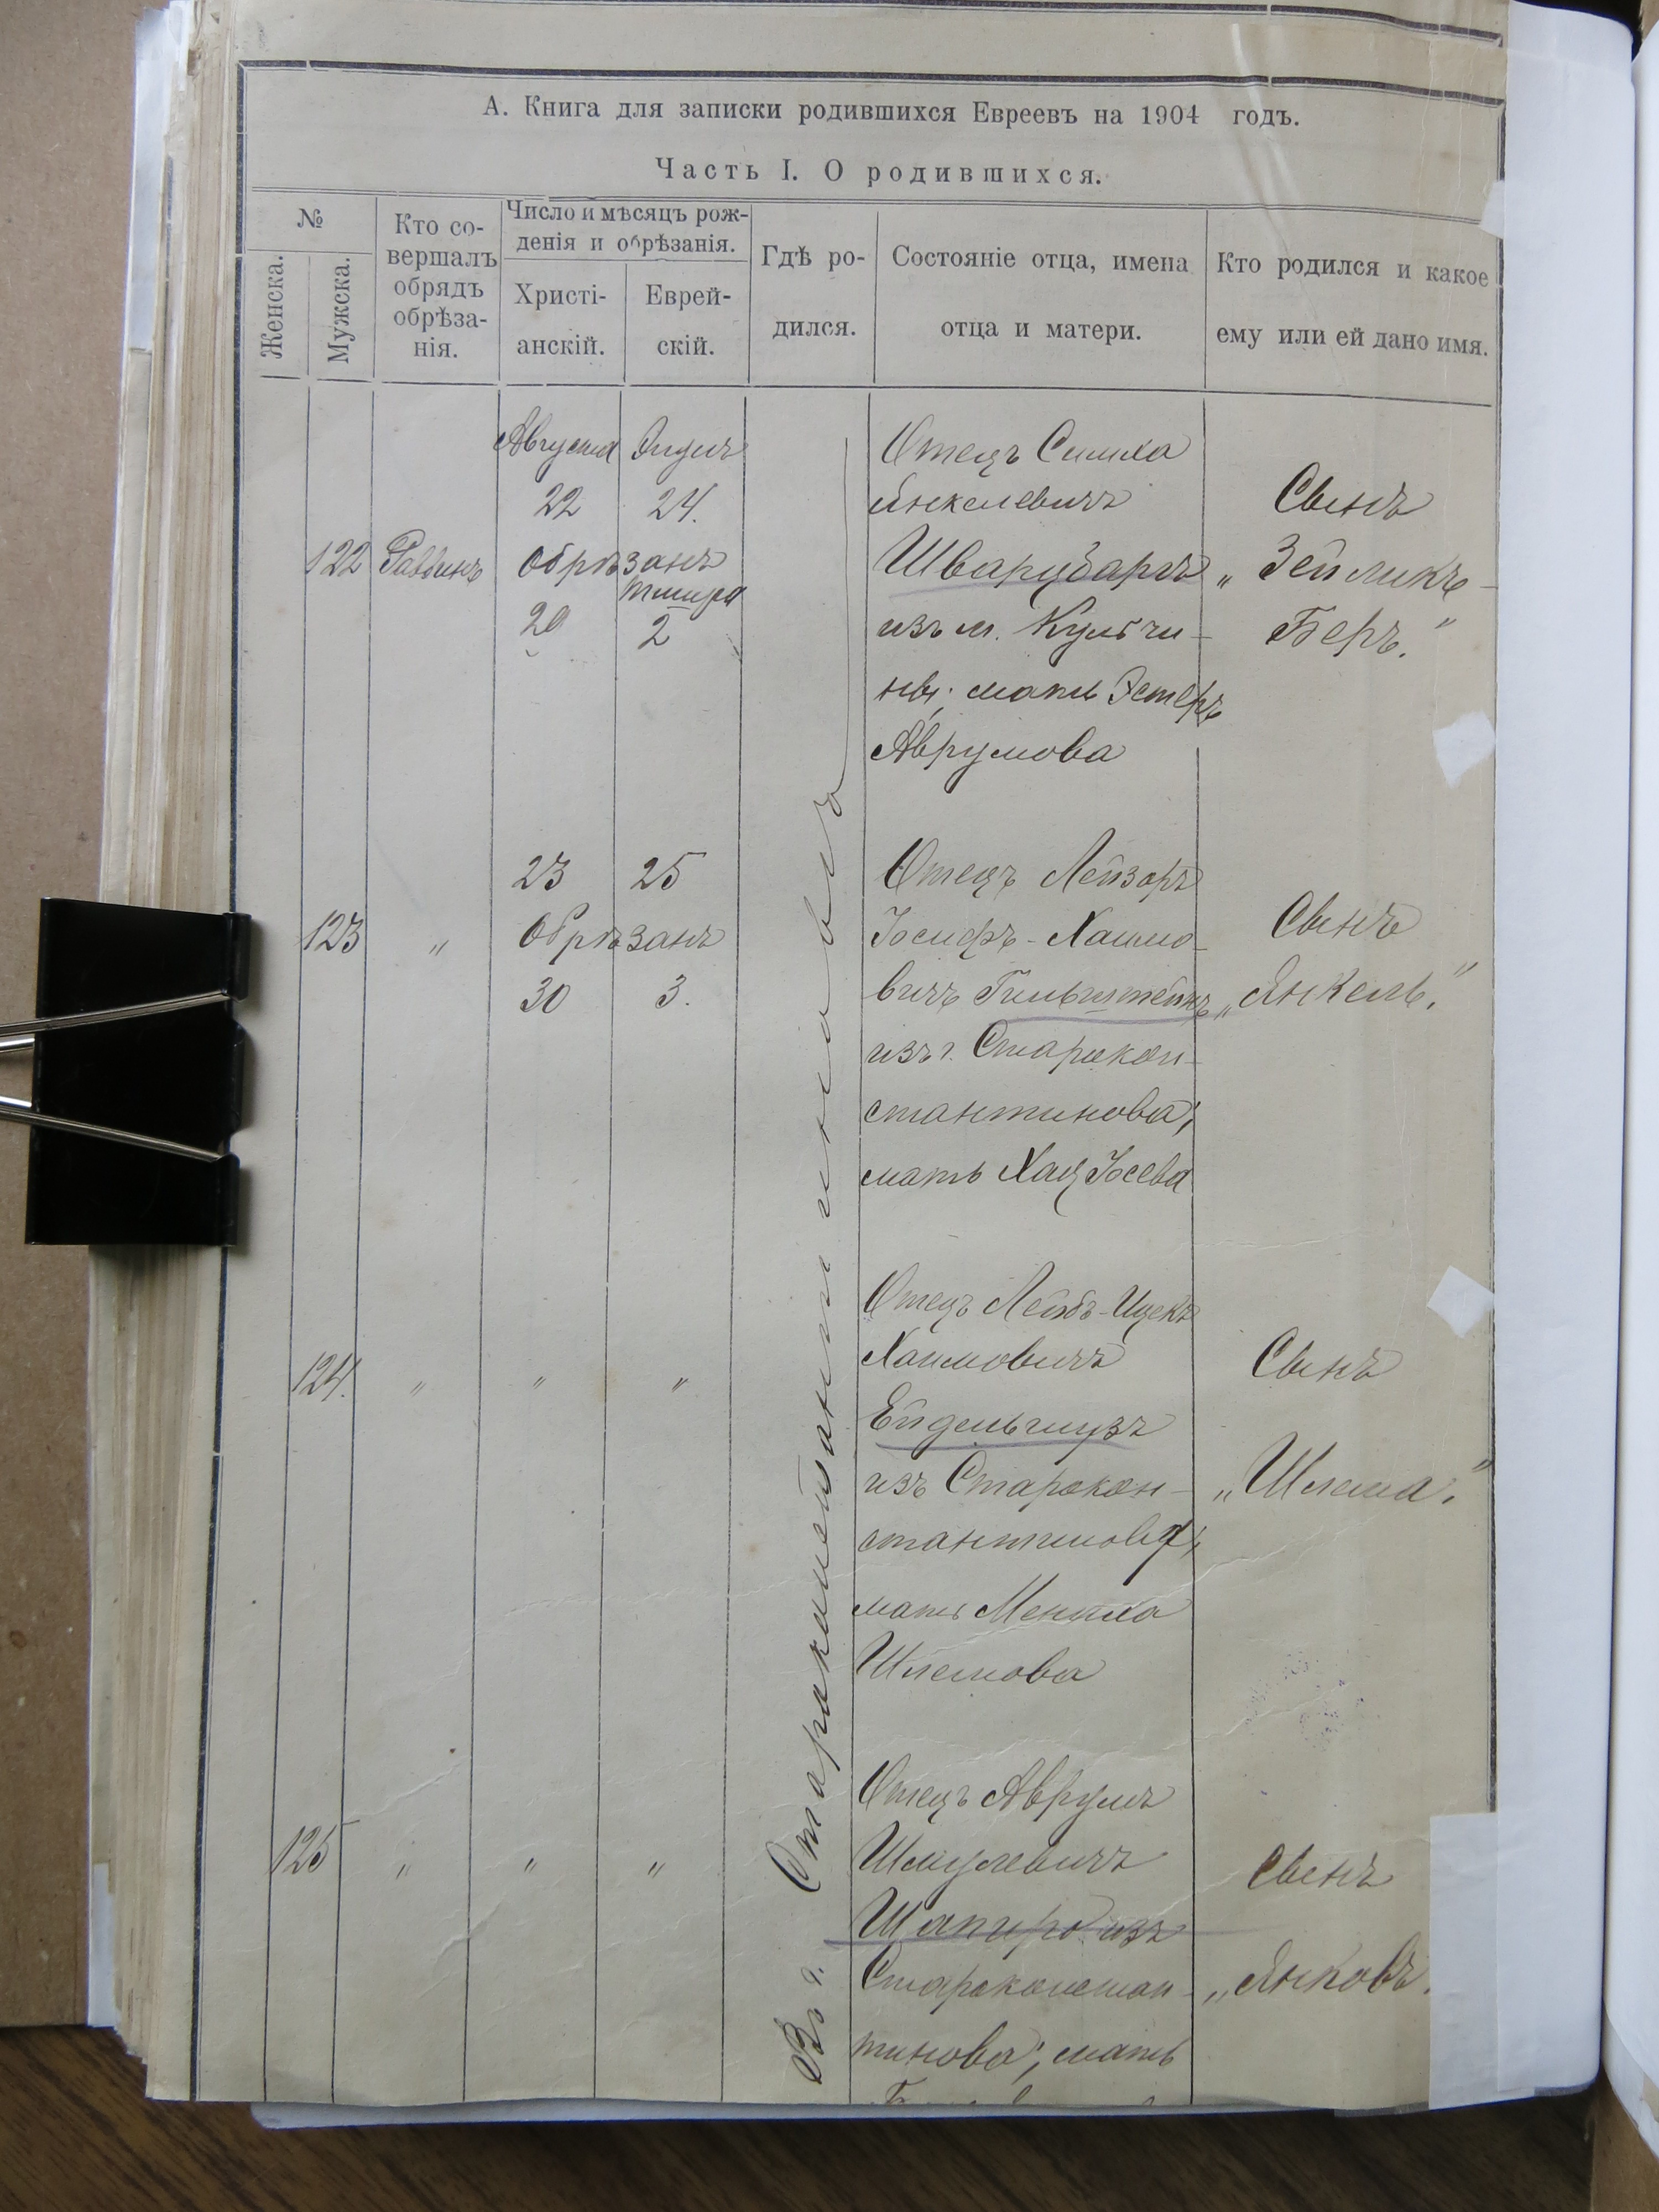 А. Книга для записки родившихся Евреевъ на 1904 годъ.
Часть I. О родившихся.
№
Женска.
Мужска.
Кто со-
вершалъ
обрядъ
обрѣза-
нія.
Число и мѣсяцъ рож-
денія и обрѣзанія.
Христі-
анскій.
Еврей-
скій.
Гдѣ ро-
дился.
Состояніе отца, имена
отца и матери.
Кто родился и какое
ему или ей дано имя.
Въ г. Староконстантиновѣ
122
Раввинъ
Августа
22
24.
Обрѣзанъ
тишра
29
2
Отецъ Симха
Янкелевичъ
Шварцбаръ
изъ м. Кульчи-
нъ; мать Эстеръ
Аврумова
Сынъ
„Зейликъ-
Беръ."
123
"
23 25
Обрѣзанъ
30 3.
Отецъ Лейзоръ
Іосифъ-Хаимо-
вичъ Гильштейнъ
изъ г. Старокон-
стантинова;
мать Хая Іосева
Сынъ
„Янкель."
124.
" " "
Отецъ Лейбъ-Ицекъ
Хаимовичъ
из Старокон-
стантинова;
мать
Шлемова
Сынъ
„Шлема."
125
" " "
Отецъ Аврумъ
Шмулевичъ
Шапиро изъ
Староконстан-
тинова; мать
Сынъ
„Янковъ.